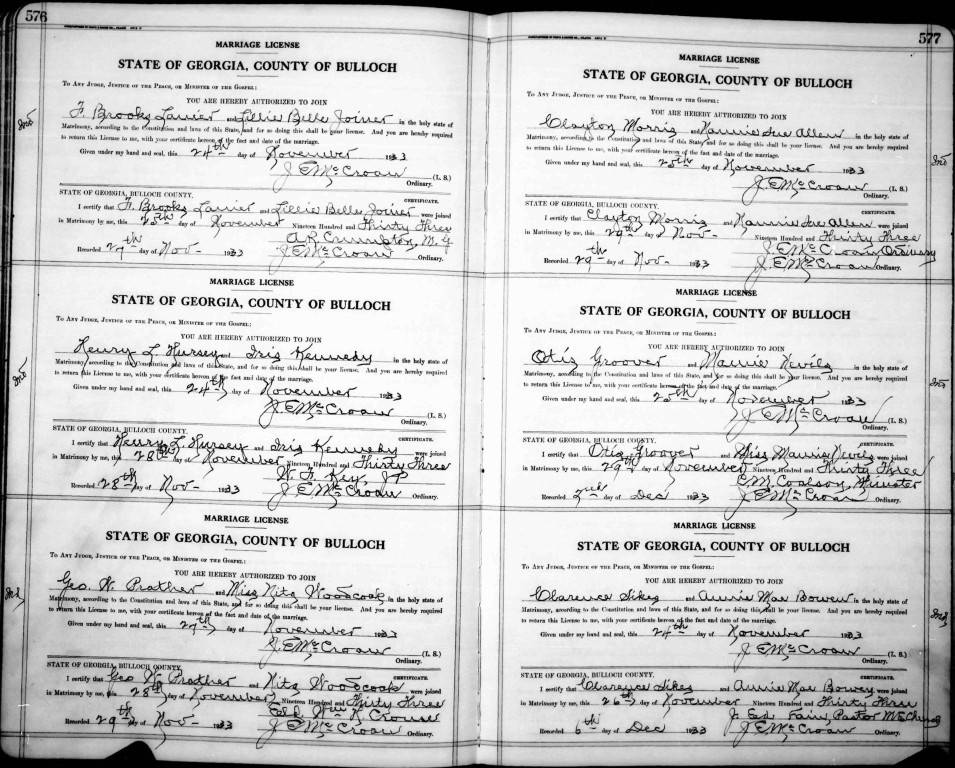 576
MARRIAGE LICENSE
STATE OF GEORGIA, COUNTY OF BULLOCH
To Any Judge, Justice of the Peace, or Minister of the Gospel:
YOU ARE HEREBY AUTHORIZED TO JOIN
F. Brooks Lanier and Lillie Belle Joiner in the holy state of
Matrimony, according to the Constitution and laws of this State, and for so doing this shall be your license. And you are hereby required
to return this License to me, with your certificate hereon of the fact and date of the marriage.
Given under my hand and seal, this 24th day of November 1933
J. E. McCroan (L. S.)
Ordinary.
STATE OF GEORGIA, BULLOCH COUNTY. CERTIFICATE.
I certify that F. Brooks Lanier and Lillie Belle Joiner were joined
in Matrimony by me, this 25th day of November Nineteen Hundred and Thirty Three
A. R. Crumpton, M. G.
Recorded 27th day of Nov- 1933 J. E. McCroan Ordinary.
MARRIAGE LICENSE
STATE OF GEORGIA, COUNTY OF BULLOCH
To Any Judge, Justice of the Peace, or Minister of the Gospel:
YOU ARE HEREBY AUTHORIZED TO JOIN
Henry L. Hursey and Iris Kennedy in the holy state of
Matrimony, according to the Constitution and laws of this State, and for so doing this shall be your license. And you are hereby required
to return this License to me, with your certificate hereon of the fact and date of the marriage.
Given under my hand and seal, this 24th day of November 1933
J. E. McCroan (L. S.)
Ordinary.
STATE OF GEORGIA, BULLOCH COUNTY. CERTIFICATE.
I certify that Henry L. Hursey and Iris Kennedy were joined
in Matrimony by me, this 28th day of November Nineteen Hundred and Thirty Three
W. F. Key, J P
Recorded 28th day of Nov- 1933 J. E. McCroan Ordinary.
MARRIAGE LICENSE
STATE OF GEORGIA, COUNTY OF BULLOCH
To Any Judge, Justice of the Peace, or Minister of the Gospel:
YOU ARE HEREBY AUTHORIZED TO JOIN
Geo. W. Prather and Miss Nita Woodcock in the holy state of
Matrimony, according to the Constitution and laws of this State, and for so doing this shall be your license. And you are hereby required
to return this License to me, with your certificate hereon of the fact and date of the marriage.
Given under my hand and seal, this 27th day of November 1933
J. E. McCroan (L. S.)
Ordinary.
STATE OF GEORGIA, BULLOCH COUNTY. CERTIFICATE.
I certify that Geo W. Prather and Nita Woodcock were joined
in Matrimony by me, this 28th day of November Nineteen Hundred and Thirty Three
Wm K. Crouse
Recorded 29th day of Nov- 1933 J. E. McCroan Ordinary.
577
MARRIAGE LICENSE
STATE OF GEORGIA, COUNTY OF BULLOCH
To Any Judge, Justice of the Peace, or Minister of the Gospel:
YOU ARE HEREBY AUTHORIZED TO JOIN
Clayton Morris and Nannie Sue Allen in the holy state of
Matrimony, according to the Constitution and laws of this State, and for so doing this shall be your license. And you are hereby required
to return this License to me, with your certificate hereon of the fact and date of the marriage.
Given under my hand and seal, this 25th day of November 1933
J. E. McCroan (L. S.)
Ordinary.
STATE OF GEORGIA, BULLOCH COUNTY. CERTIFICATE.
I certify that Clayton Morris and Nannie Sue Allen were joined
in Matrimony by me, this 29th day of Nov- Nineteen Hundred and Thirty Three
J. E. McCroan, Ordinary
Recorded 29th day of Nov- 1933 J. E. McCroan Ordinary.
MARRIAGE LICENSE
STATE OF GEORGIA, COUNTY OF BULLOCH
To Any Judge, Justice of the Peace, or Minister of the Gospel:
YOU ARE HEREBY AUTHORIZED TO JOIN
Otis Groover and Mamie Nevils in the holy state of
Matrimony, according to the Constitution and laws of this State, and for so doing this shall be your license. And you are hereby required
to return this License to me, with your certificate hereon of the fact and date of the marriage.
Given under my hand and seal, this 25th day of November 1933
J. E. McCroan (L. S.)
Ordinary.
STATE OF GEORGIA, BULLOCH COUNTY. CERTIFICATE.
I certify that Otis Groover and Miss Mamie Nevils were joined
in Matrimony by me, this 29th day of November Nineteen Hundred and Thirty Three
C. M. Coalson, Minister
Recorded 2nd day of Dec 1933 J. E. McCroan Ordinary.
MARRIAGE LICENSE
STATE OF GEORGIA, COUNTY OF BULLOCH
To Any Judge, Justice of the Peace, or Minister of the Gospel:
YOU ARE HEREBY AUTHORIZED TO JOIN
Clarence Sikes and Annie Mae Bowen in the holy state of
Matrimony, according to the Constitution and laws of this State, and for so doing this shall be your license. And you are hereby required
to return this License to me, with your certificate hereon of the fact and date of the marriage.
Given under my hand and seal, this 24th day of November 1933
J. E. McCroan (L. S.)
Ordinary.
STATE OF GEORGIA, BULLOCH COUNTY. CERTIFICATE.
I certify that Clarence Sikes and Annie Mae Bowen were joined
in Matrimony by me, this 26th day of November Nineteen Hundred and Thirty Three
J. Ed. Fain, Pastor M. E. Church
Recorded 6th day of Dec 1933 J. E. McCroan Ordinary.